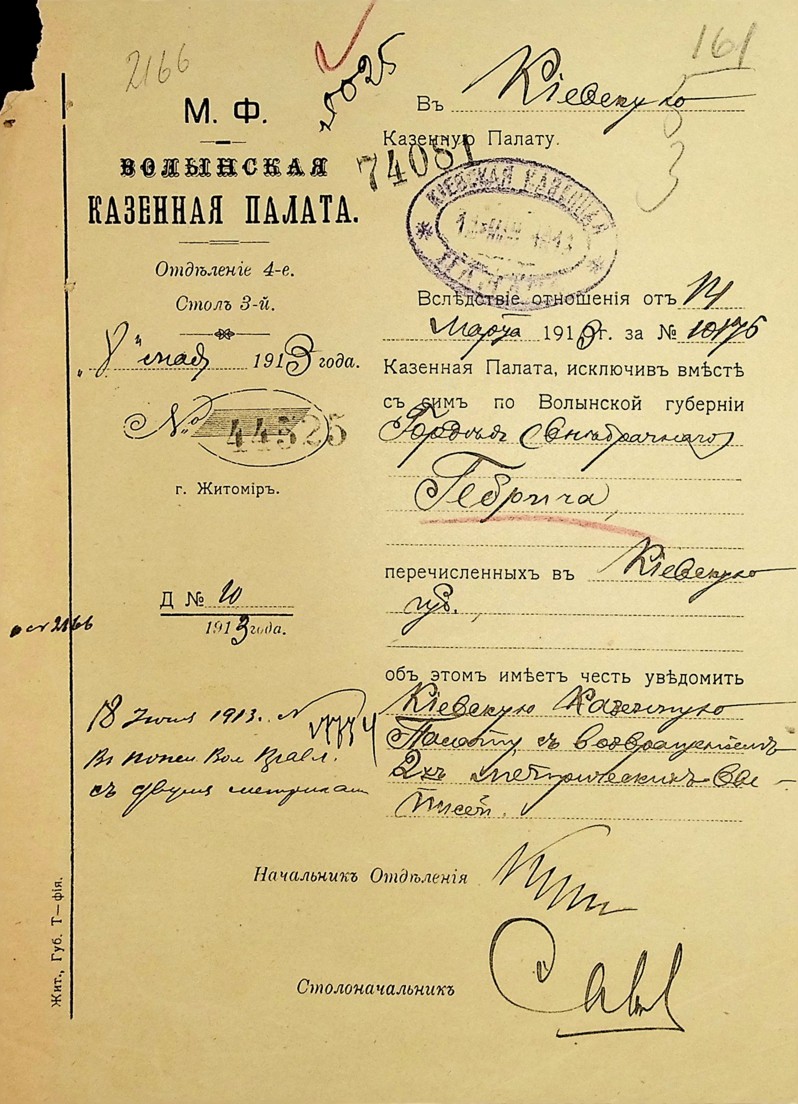 2166
20025
161
3
М. Ф.
ВОЛЫНСКАЯ
КАЗЕННАЯ ПАЛАТА.
Отдѣленіе 4-е.
Столъ 3-й.
„8" мая 1913 года.
№ 44325
г. Житоміръ.
Д № 10
1913 года.
ост 2166
18 Іюня 1913. №
Въ
съ двумя метриками
Въ Кіевскую
Казенную Палату.
74081
КІЕВСКАЯ КАЗЕННАЯ
1913
ПАЛАТА
Вслѣдствіе отношенія отъ 14
Марта 1913 г. за № 10175
Казенная Палата, исключивъ вмѣстѣ
съ симъ по Волынской губерніи
Гебрича,
перечисленныхъ въ Кіевскую
губ.,
объ этомъ имѣетъ честь увѣдомить
Кіевскую Казенную
Палату, съ возвращеніемъ
2хъ метрическихъ вы-
писей.
Начальникъ Отдѣленія
Столоначальникъ
Жит., Губ. Т—фія.